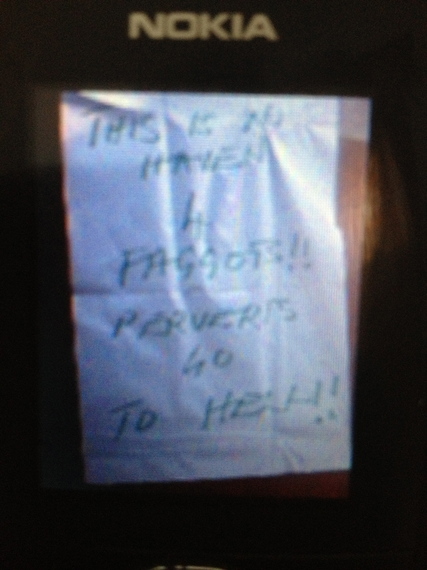 NOKIA
THIS IS NO
HAVEN
4
FAGGOTS!!
PERVERTS
GO
TO HELL!!